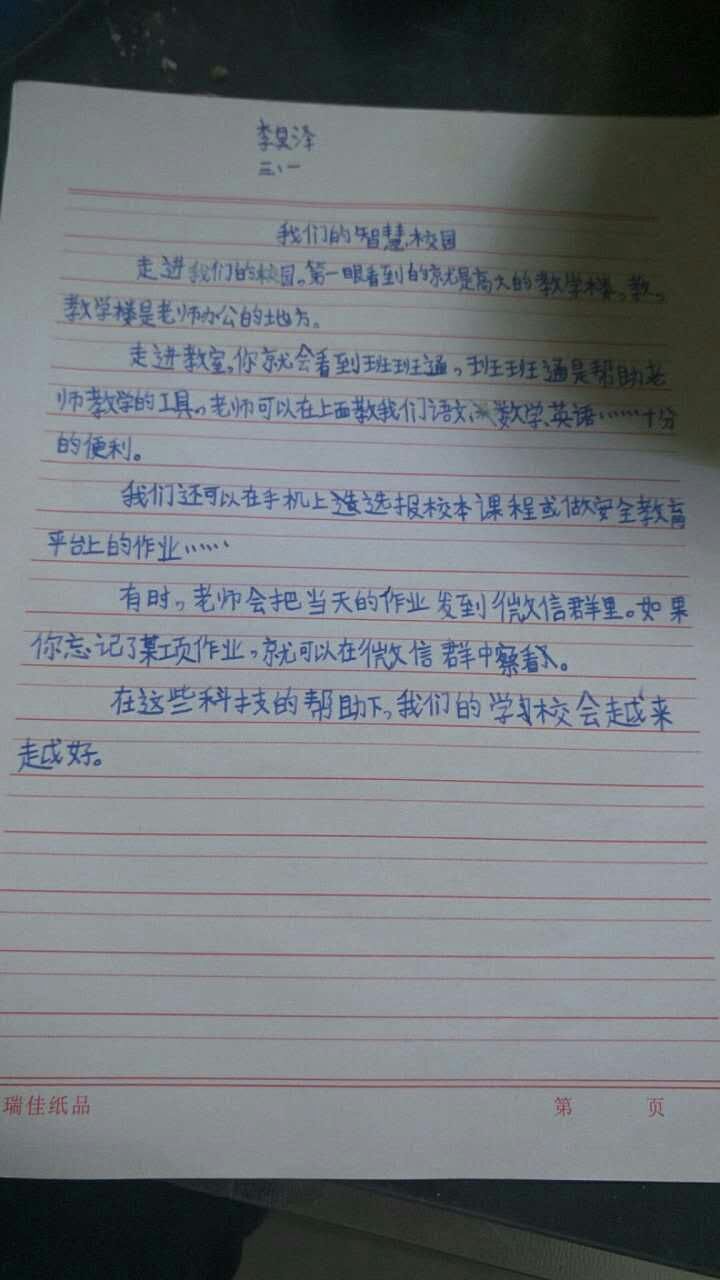 李昊泽
三、一
我们的智慧校园
走进我们的校园。第一眼看到的就是高大的教学楼，教，
教学楼是老师办公的地方。
走进教室，你就会看到班班通，班班通是帮助老
师教学的工具。老师可以在上面教我们语文、数学、英语……十分
的便利。
我们还可以在手机上选报校本课程或做安全教育
平台上的作业……
有时，老师会把当天的作业发到微信群里。如果
你忘记了某项作业，就可以在微信群中察看。
在这些科技的帮助下，我们的学校会越来
越好。
瑞佳纸品 第 页